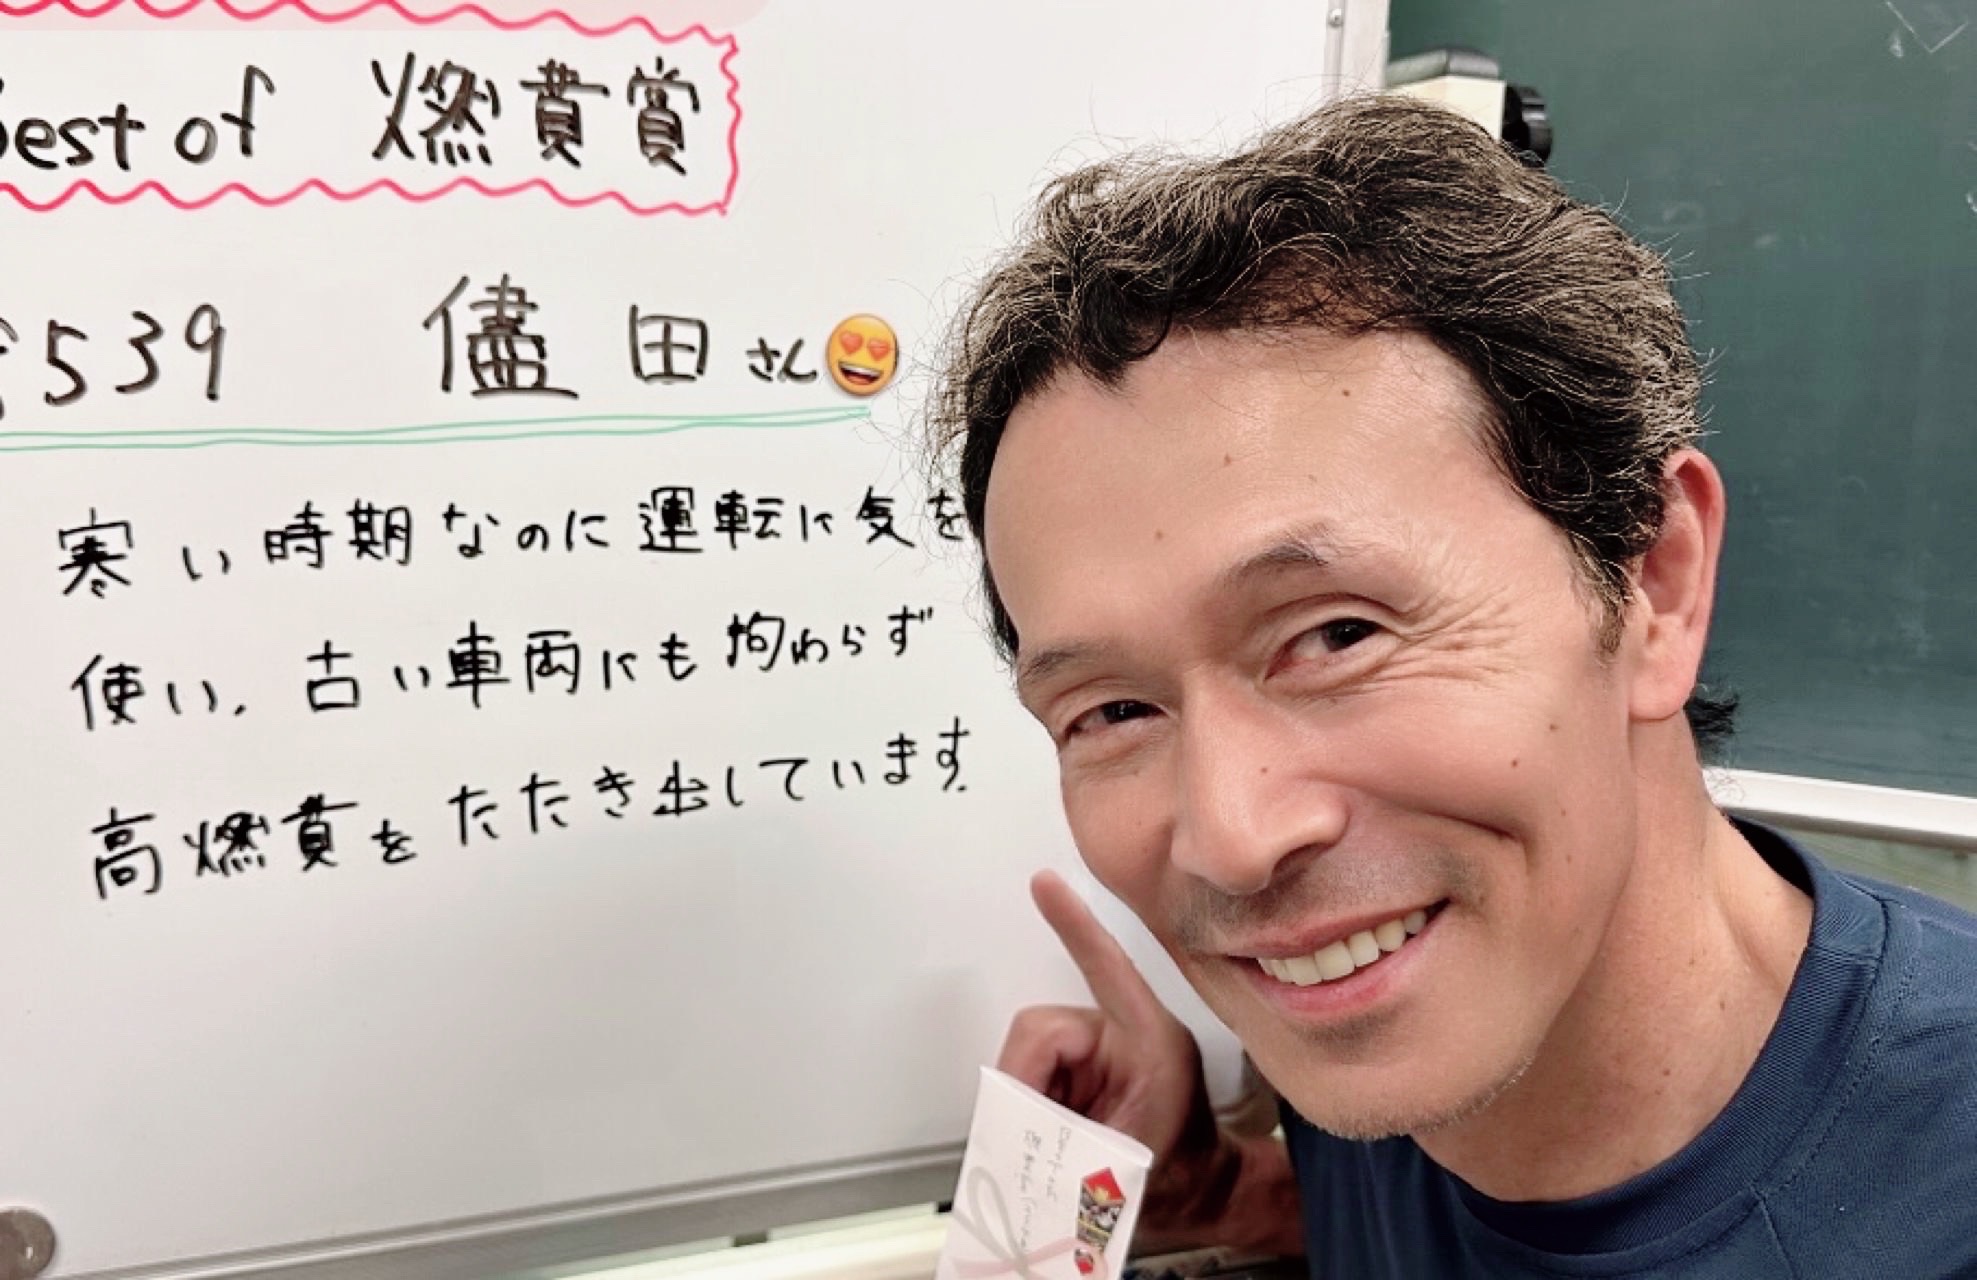 Best of 燃費賞
539 儘田さん
寒い時期なのに運転に気を
使い、古い車両にも拘わらず
高燃費をたたき出しています。
Best of
燃費賞